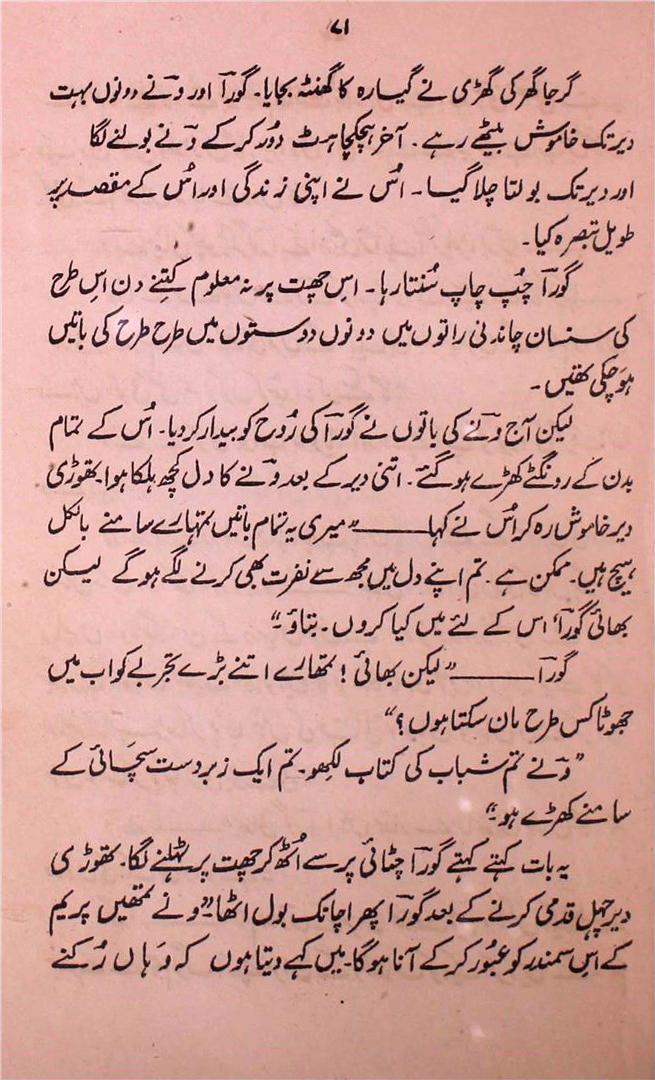 ۷۱
گرجا گھر کی گھڑی نے گیارہ کا گھنٹہ بجایا۔ گورآ اور ونے دونوں بہت
دیر تک خاموش بیٹھے رہے۔ آخر ہچکچاہٹ دُور کر کے ونے بولنے لگا
اور دیر تک بولتا چلا گیا۔ اس نے اپنی زندگی اور اُس کے مقصد پر
طویل تبصرہ کیا۔
گورآ چُپ چاپ سُنتا رہا۔ اس چھت پر نہ معلوم کتنے دن اس طرح
کی سنسان چاندنی راتوں میں دونوں دوستوں میں طرح طرح کی باتیں
ہو چکی تھیں۔
لیکن آج ونے کی باتوں نے گورآ کی رُوح کو بیدار کر دیا۔ اُس کے تمام
بدن کے رونگٹے کھڑے ہو گئے۔ اتنی دیر کے بعد ونے کا دل کچھ ہلکا ہوا۔ تھوڑی
دیر خاموش رہ کر اس نے کہا ــــــ "میری یہ تمام باتیں تمہارے سامنے بالکل
ہیچ ہیں۔ ممکن ہے۔ تم اپنے دل میں مجھ سے نفرت بھی کرنے لگے ہو گے لیکن
بھائی گورآ اس کے لئے میں کیا کروں۔ بتاؤ۔"
گورآ ــــــ "لیکن بھائی! تمھارے اتنے بڑے تجربے کو اب میں
جھوٹا کس طرح مان سکتا ہوں؟"
"ونے تم شباب کی کتاب لکھو۔ تم ایک زبردست سچائی کے
سامنے کھڑے ہو۔"
یہ بات کہتے کہتے گورآ چٹائی پر سے اُٹھ کر چھت پر ٹہلنے لگا۔ تھوڑی
دیر چہل قدمی کرنے کے بعد گورآ پھر اچانک بول اٹھا۔ "ونے تمھیں پریم
کے اس سمندر کو عبُور کر کے آنا ہو گا۔ میں کہے دیتا ہوں کہ وَہاں رُکنے